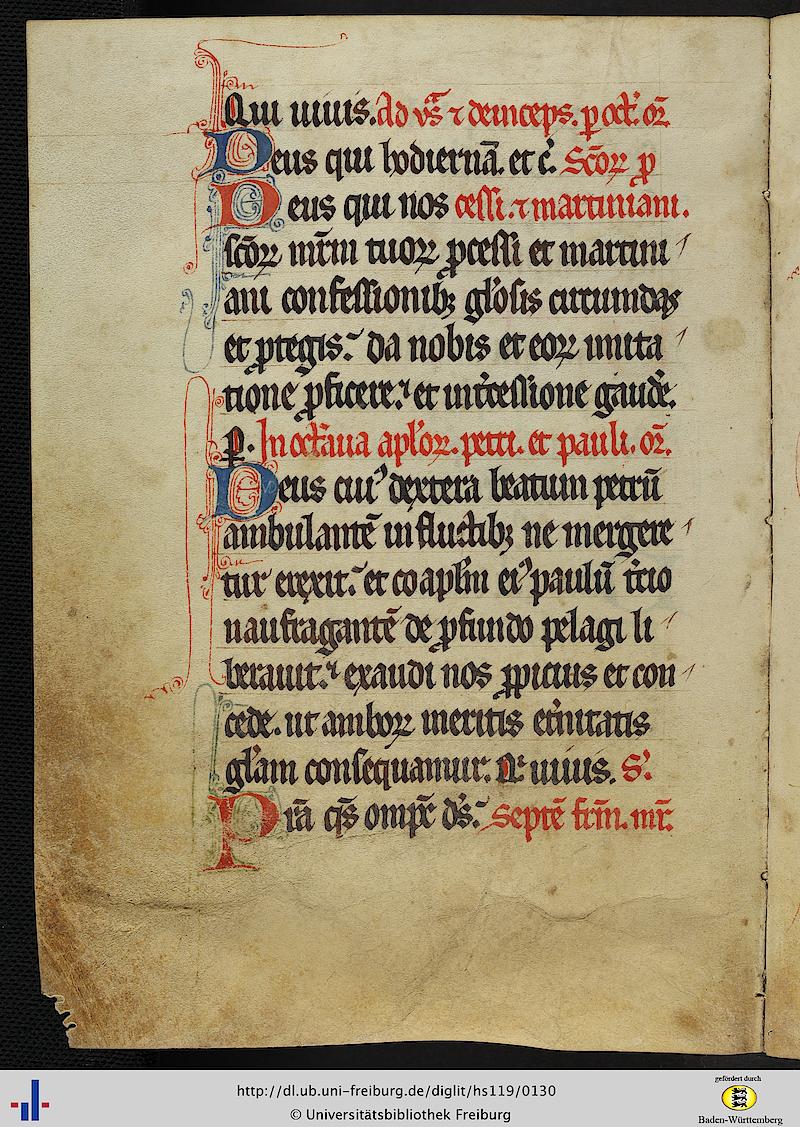 Qui uiuis. Ad vs̄ ⁊ deinceps. p oct̄. or̄
Deus qui hodiernā. et c̄. Scōꝝ ꝓ
Deus qui nos cessi. ⁊ martiniani.
scōꝝ mr̄m tuoꝝ ꝓcessi et martini
ani confessionibꝫ gl'osis circumdas
et ꝓtegis. da nobis et eoꝝ imita
tione ꝓficere. et int̄cessione gaudē.
ꝑ. In octaua apl'oꝝ. petri. et pauli. or̄.
Deus cuiꝰ dextera beatum petrū
ambulantē in fluctibꝫ ne mergere
tur erexit. et coapl'm eiꝰ paulū t̄cio
naufragantē de ꝓfundo pelagi li
berauit. exaudi nos ꝓpicius et con
cede. ut amboꝝ meritis et̄nitatis
gl'am consequamur. Qi uiuis. S'.
Prā qs̄ omp̄c ds̄. Septē fr̄m. mr̄.
http://dl.ub.uni-freiburg.de/diglit/hs119/0130
© Universitätsbibliothek Freiburg
gefördert durch
Baden-Württemberg